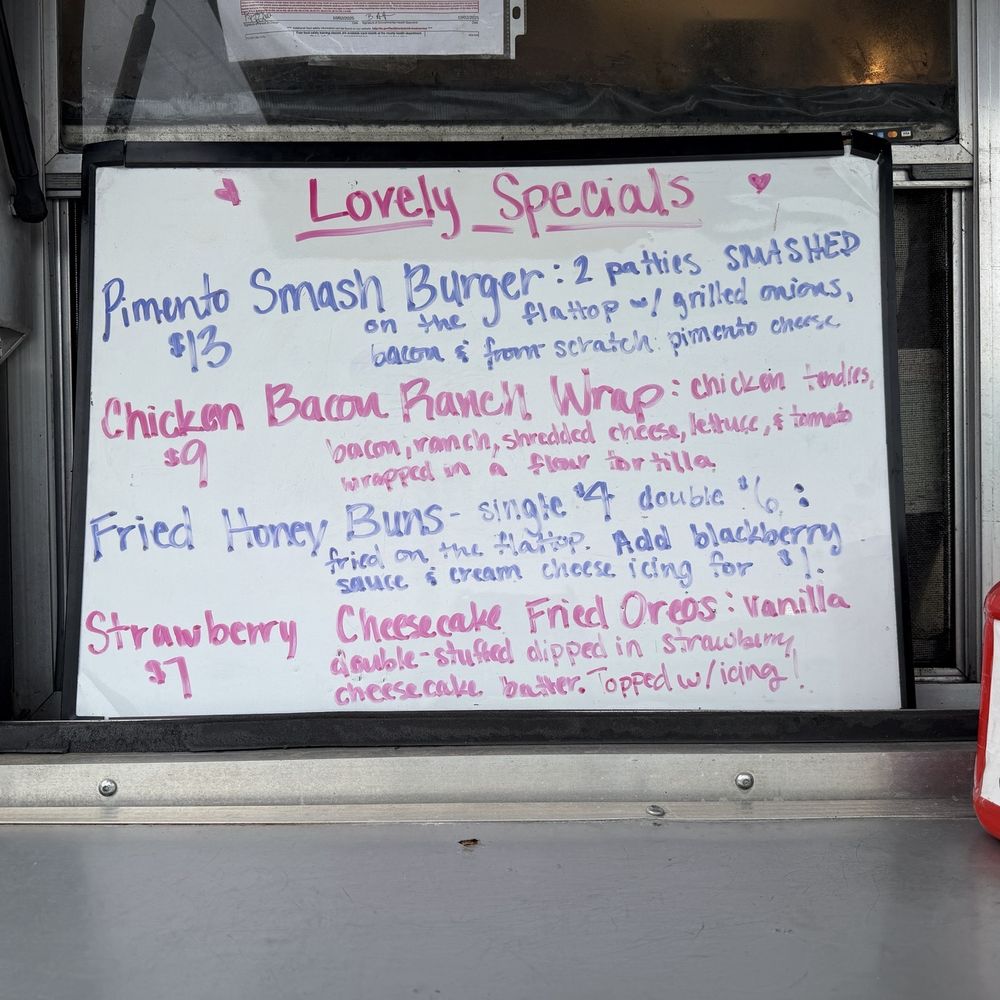 Lovely Specials
Pimento Smash Burger: 2 patties SMASHED
$13 on the flattop w/ grilled onions,
bacon & from scratch pimento cheese
Chicken Bacon Ranch Wrap: chicken tendies,
$9 bacon, ranch, shredded cheese, lettuce, & tomato
wrapped in a flour tortilla.
Fried Honey Buns - single $4 double $6:
fried on the flattop. Add blackberry
sauce & cream cheese icing for $1.
Strawberry Cheesecake Fried Oreos: vanilla
$7 double-stuffed dipped in strawberry
cheesecake batter. Topped w/ icing!